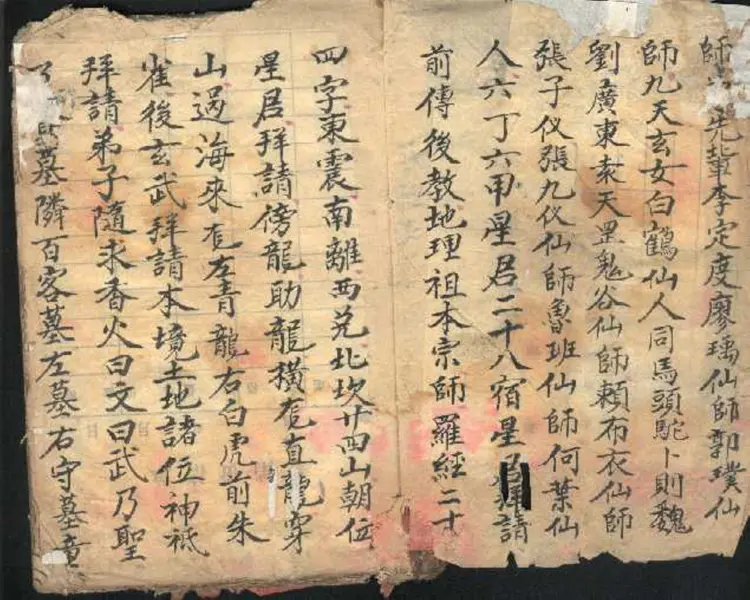 師 先輩李定度廖瑀仙師郭璞仙
師九天玄女白鶴仙人司馬頭駝卜則魏
劉廣東袁天罡鬼谷仙師賴布衣仙師
張子仪張九仪仙師魯班仙師何葉仙
人六丁六甲星君二十八宿星君拜請
前傳後教地理祖本宗師羅經二十
四字東震南離西兑北坎廿四山朝位
星居拜請傍龍助龍橫龍直龍穿
山過海來龍左青龍右白虎前朱
雀後玄武拜請本境土地諸位神祇
拜請弟子隨求香火曰文曰武乃聖
墓隣百客墓左墓右守墓童